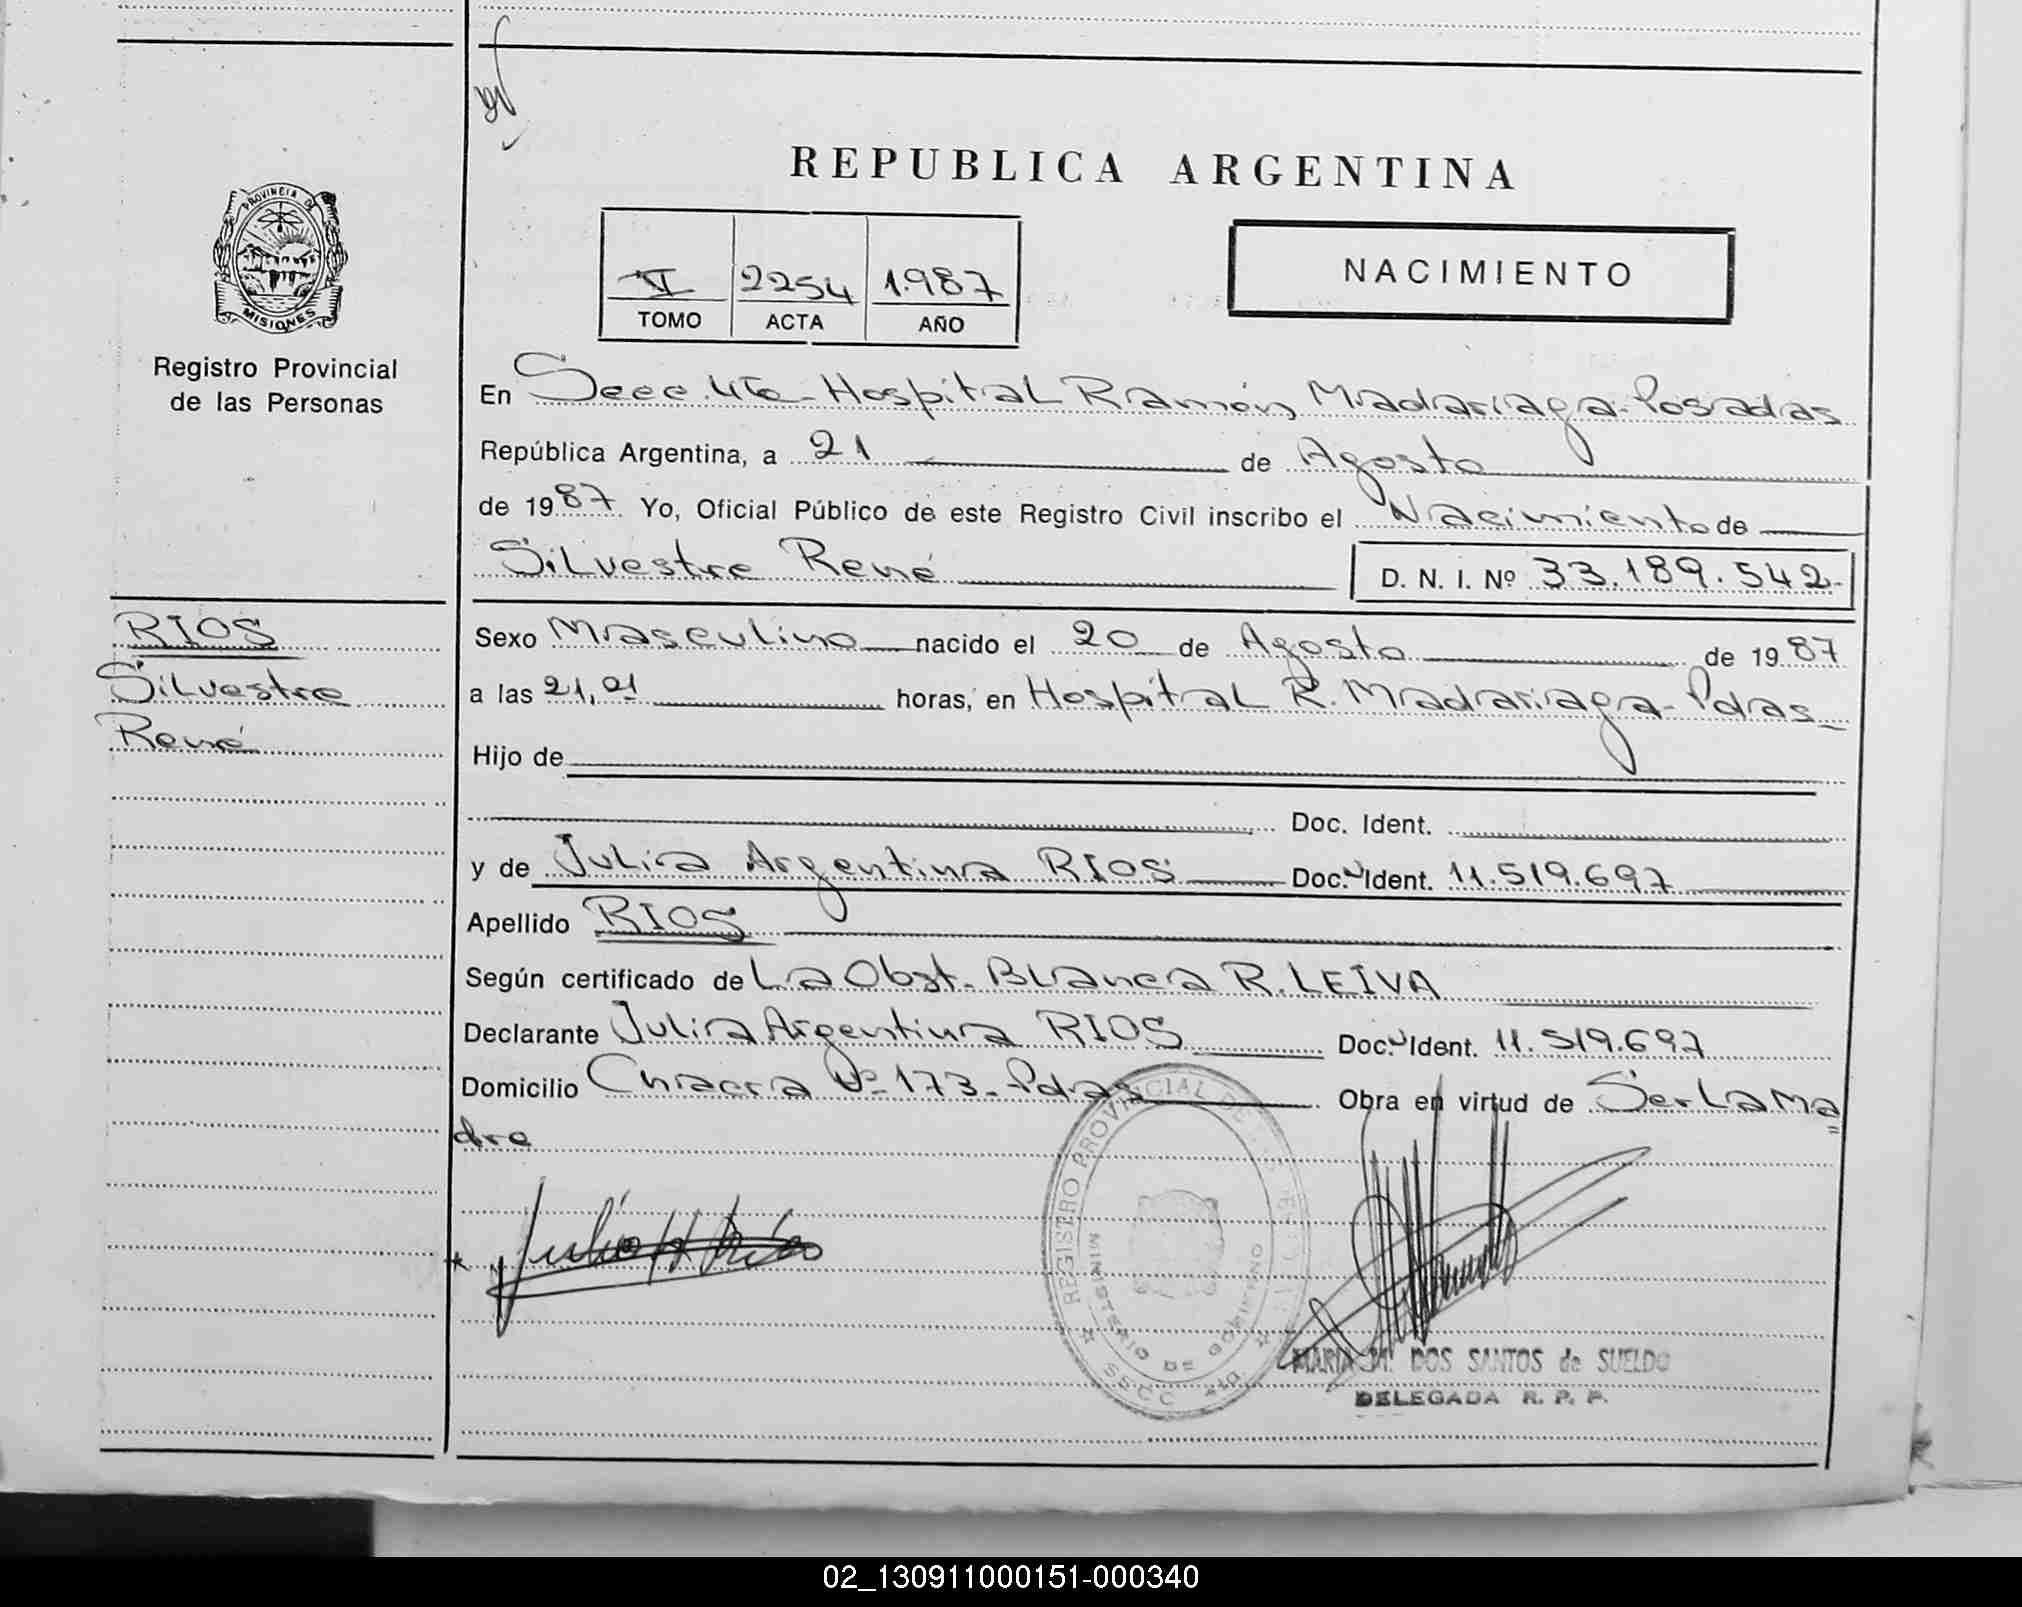 REPUBLICA ARGENTINA
PROVINCIA DE
MISIONES
Registro Provincial
de las Personas
VI 2254 1.987
TOMO ACTA AÑO
NACIMIENTO
En Secc. 4ta - Hospital Ramón Madariaga - Posadas
República Argentina, a 21 de Agosto
de 1987. Yo, Oficial Público de este Registro Civil inscribo el Nacimiento de
Silvestre René D. N. I. Nº 33.189.542.-
RIOS
Silvestre
René
Sexo Masculino nacido el 20 de Agosto de 1987
a las 21,01 horas, en Hospital R. Madariaga - Pdas
Hijo de
Doc. Ident.
y de Julia Argentina RIOS Doc. Ident. 11.519.697
Apellido RIOS
Según certificado de La Obst. Blanca R. LEIVA
Declarante Julia Argentina RIOS Doc. Ident. 11.519.697
Domicilio Chacra Nº 173 - Pdas Obra en virtud de Ser La Ma=
dre
Julia A Rios
REGISTRO PROVINCIAL DE LAS PERSONAS
MINISTERIO DE GOBIERNO
SSCC
MARIA M. DOS SANTOS de SUELDO
DELEGADA R. P. P.
02_130911000151-000340